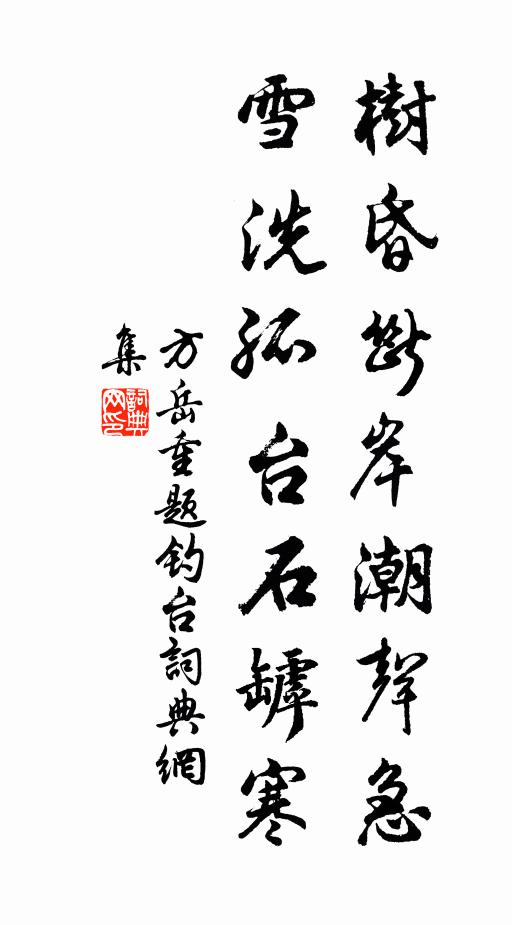 樹昏斷岸潮聲急
雪洗孤台石罅寒
方岳重題釣台詞典網
集
詞典
网印